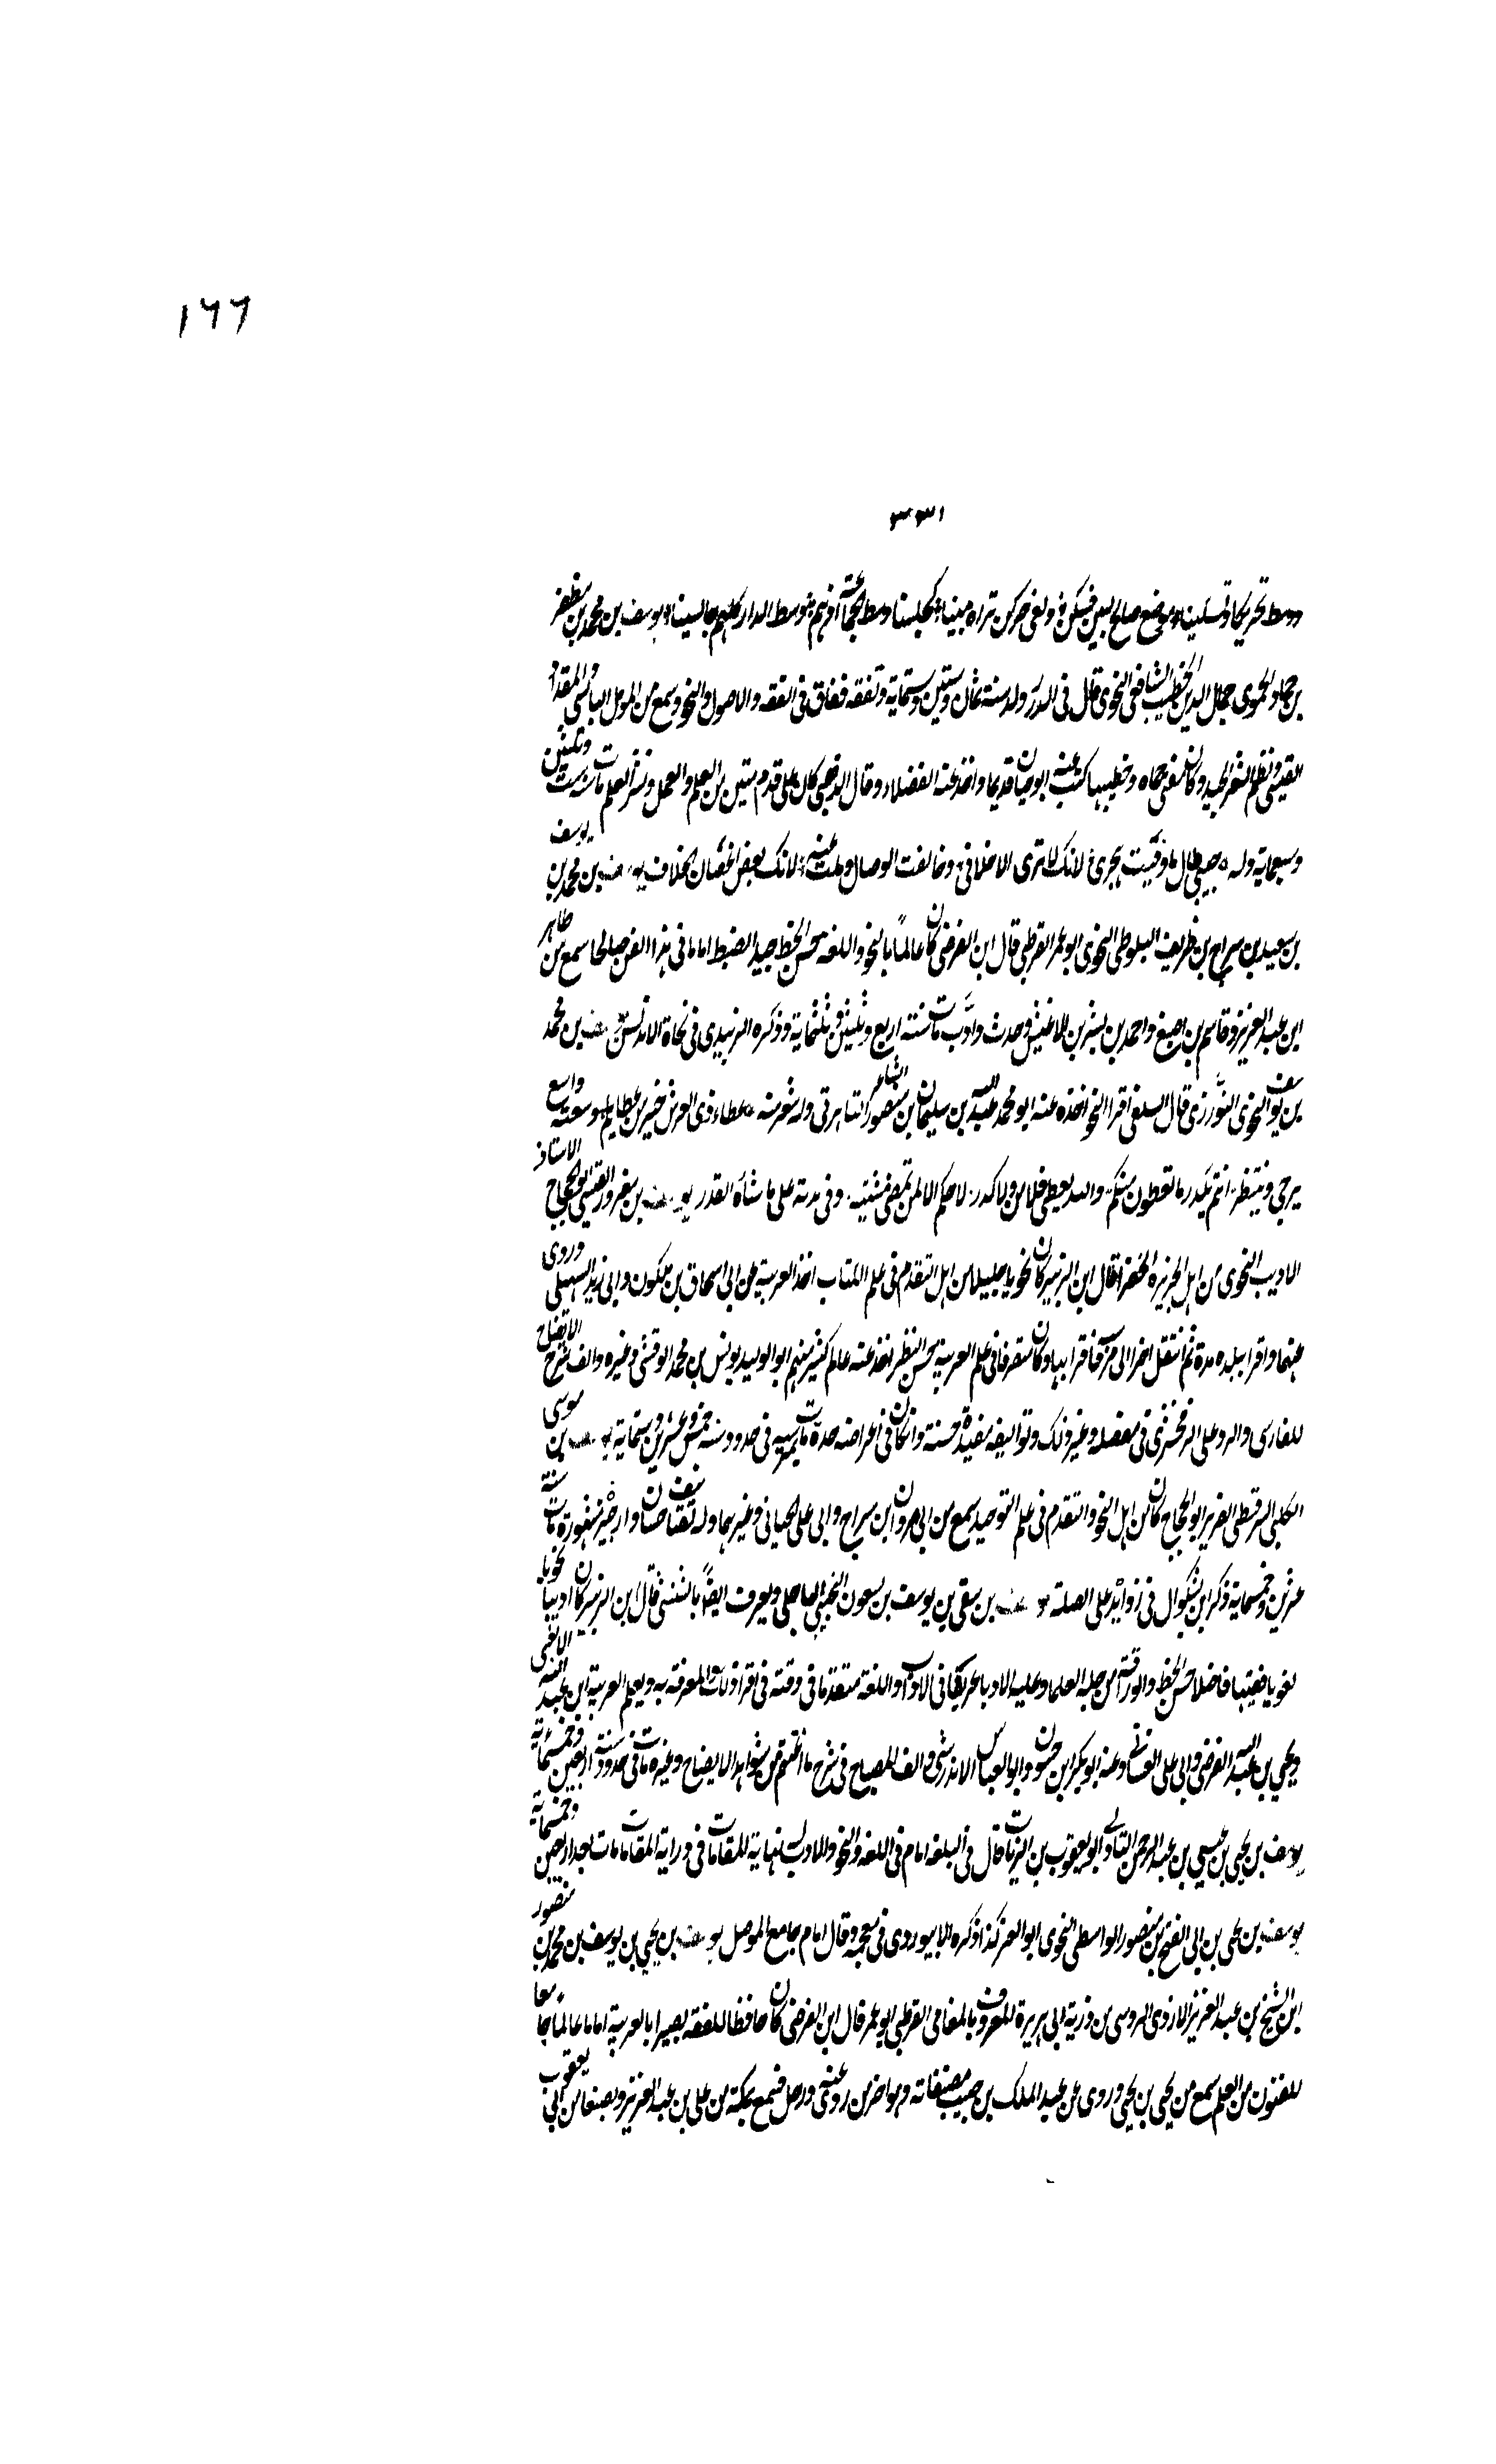 ١٦٦
ووسط تحريكا وتسكينا ٭ موضع صالح لبين فسكن ٭ ولفى حركن تراه مبينا ٭ كجلسنا وسط الجماعة اذ هم ٭ وسط الدار كلهم جالسينا ٭ يوسف بن محمد بن مظفر
بن حماد الحموى جمال الدين الخطيب الشافعى النحوى قال فى الدرر ولد سنة ثمان وستين وستماية وتفقه ففاق فى الفقه والاصول والنحو وسمع من المومل البالسى والمقداد
القيسى ونظم الشعر الجيد وكان مفتى حماه وخطيبها كتب عنه ابو حيان قديما واخذ عنه الفضلاء وقال الذهبى كان على قدم متين من العلم والعمل ونشر العلم مات سنة ست وثلثين
وسبعماية وله ٭ حبيبى طال ما وفيت بهجرى ٭ لانك لا ترى الا خلافى ٭ وخالفت الوصال وملت عنه ٭ لانك بعض اغصان الخلاف يوسف بن محمد بن يوسف
بن سعيد بن سراج بن طريف البلوطى النحوى ابو عمر القرطبى قال ابن الفرضى كان عالماً بالنحو واللغه حسن الخط جيد الضبط اماما فى هذا الفن صالحا سمع من طاهر
ابن عبد العزيز وقاسم بن اصبغ واحمد بن بشر بن الاغبش وحدث وادّب مات سنة اربع وثلثين وثلثماية وذكره الزبيدى فى نحاة الاندلس يوسف بن محمد
بن يوسف النحوى التَّوزرى قال السلفى اقرا النحو اخذه عنه ابو محمد عبد الله بن سليمان بن منصور التاهرتى وله شعر منه ٭ عطاء ذى العرش خير من عطايكم ٭ وسعته واسع
يرجى وينتظر ٭ انتم يكدر ما تعطون منكم ٭ والله يعطى فلا من ولا كدر ٭ لا حكم الا لمن تمضى مشيته ٭ وفى يديه على ما شاءه القدر يوسف بن معزوز القيسى الاستاذ ابو الحجاج
الاديب النحوى من اهل الجزيره الخضرا قال ابن الزبير كان نحويا جليلا من اهل التقدم فى علم الكتاب اخذ العربية عن ابى اسحاق بن ملكون وابى زيد السهيلى وروى
عنهما واقرا ببلده مدة ثم انتقل اخرا الى مرسية فاقرا بها وكان متصرفا فى علم العربية حسن النظر اخذ عنه عالم كثير منهم ابو الوليد يونس بن محمد الوقشى وغيره والف شرح الايضاح
للفارسى والرد على الزمخشرى فى مفصله وغير ذلك وتواليفه مفيدة حسنة وان كان فى اعراضه حدة مات بمرسيه فى حدود سنة خمس وعشرين وستماية يوسف بن موسى
الكلبى السرقسطى الضرير ابو الحجاج كان من اهل النحو والتقدم فى علم التوحيد سمع من ابى مروان ابن سراج وابى على الجيانى وغيرهما وله تصانيف حسان وارجوزة مشهورة مات سنة
عشرين وخمسماية ذكر ابن بشكوال فى زوائده على الصلة يوسف بن يبقى بن يوسف بن يسعون التجيبى الباجلى ويعرف ايضاً بالشنشى قال ابن الزبير كان اديبا نحويا
لغويا فقيها فاضلا حسن الخط والوراقة من جلة العلماء وعلية الادباء عريقا فى الاداب واللغة متقدما فى وقته فى اقراء ذلك والمعرفة به وبعلم العربية ابن عبد الله
ويحيى بن عبد الله الفرضى وابى على الغسانى وعنه ابو بكر ابن حسنون وابو العباس الاندرشى والف المصباح فى شرح ما اعتم من شواهد الايضاح وغيره مات فى حدود سنة اربعين وخمسماية
يوسف بن يحيى بن عيسى بن عبد الرحمن التادلى ابو يعقوب بن الزيات قال فى البلغه امام فى اللغه والنحو والادب له نهاية المقامات فى دراية المقامات مات بعد اربعين وخمسماية
يوسف بن يحيى بن ابى الفتح بن منصور الواسطى النحوى ابو العز كذا ذكره الابيوردى فى معجمه وقال امام جامع الموصل يوسف بن يحيى بن يوسف بن محمد بن منصور
ابن الشيخ بن عبد العزيز الازدى الدوسى من ذرية ابى هريرة المعروف بالمغامى القرطبى ابو عمر قال ابن الفرضى كان حافظا للفقه بصيرا بالعربية اماما عالما جامعا
للفنون من العلم سمع من يحيى بن يحيى وروى عن عبد الملك بن حبيب مصنفاته وهو اخر من روى عنه ورحل فسمع بمكة من على بن عبد العزيز وبصنعا من ابى يعقوب